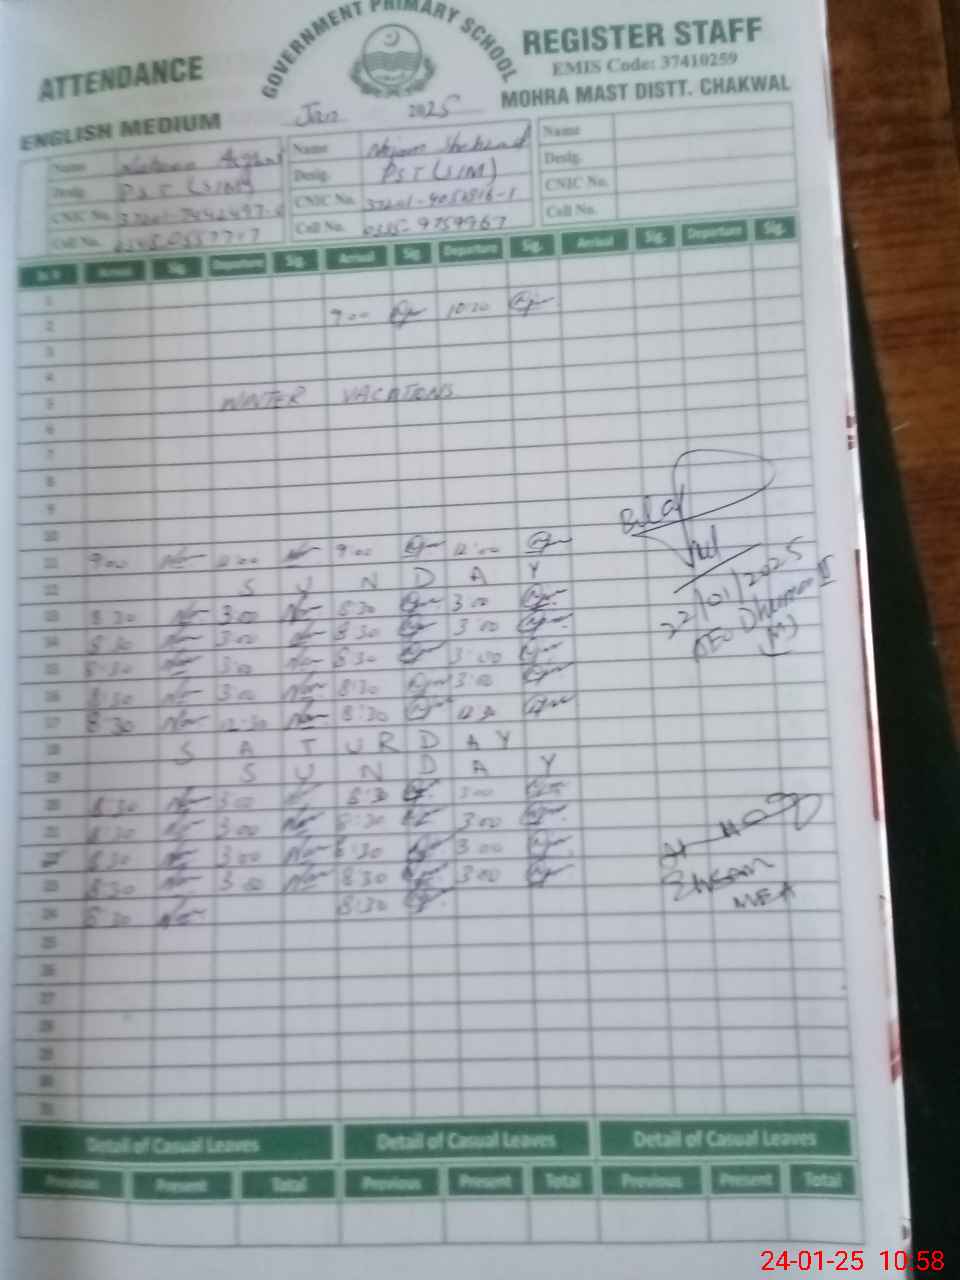 GOVERNMENT PRIMARY SCHOOL
ATTENDANCE REGISTER STAFF
EMIS Code: 37410259
ENGLISH MEDIUM Jan 2025 MOHRA MAST DISTT. CHAKWAL
Name Name Name
Desig. PST (SIM) Desig. PST (SIM) Desig.
CNIC No. CNIC No. CNIC No.
Cell No. Cell No. 0335-9759967 Cell No.
Arrival Sig. Departure Sig. Arrival Sig. Departure Sig. Arrival Sig. Departure Sig.
1
2 9:00 10:30
3
4
5 WINTER VACATIONS
6
7
8
9
10
11 9:00 12:00 9:00 12:00
12 S U N D A Y
13 8:30 3:00 8:30 3:00
14 8:30 3:00 8:30 3:00
15 8:30 3:00 8:30 3:00
16 8:30 3:00 8:30 3:00
17 8:30 12:30 8:30
18 S A T U R D A Y
19 S U N D A Y
20 8:30 3:00 8:30 3:00
21 8:30 3:00 8:30 3:00
22 8:30 3:00 8:30 3:00
23 8:30 3:00 8:30 3:00
24 8:30 8:30
25
26
27
28
29
30
31
Bilal
22/01/2025
AEO Dhurman II
(M)
Ehsan
MEA
Detail of Casual Leaves Detail of Casual Leaves Detail of Casual Leaves
Previous Present Total Previous Present Total Previous Present Total
24-01-25 10:58